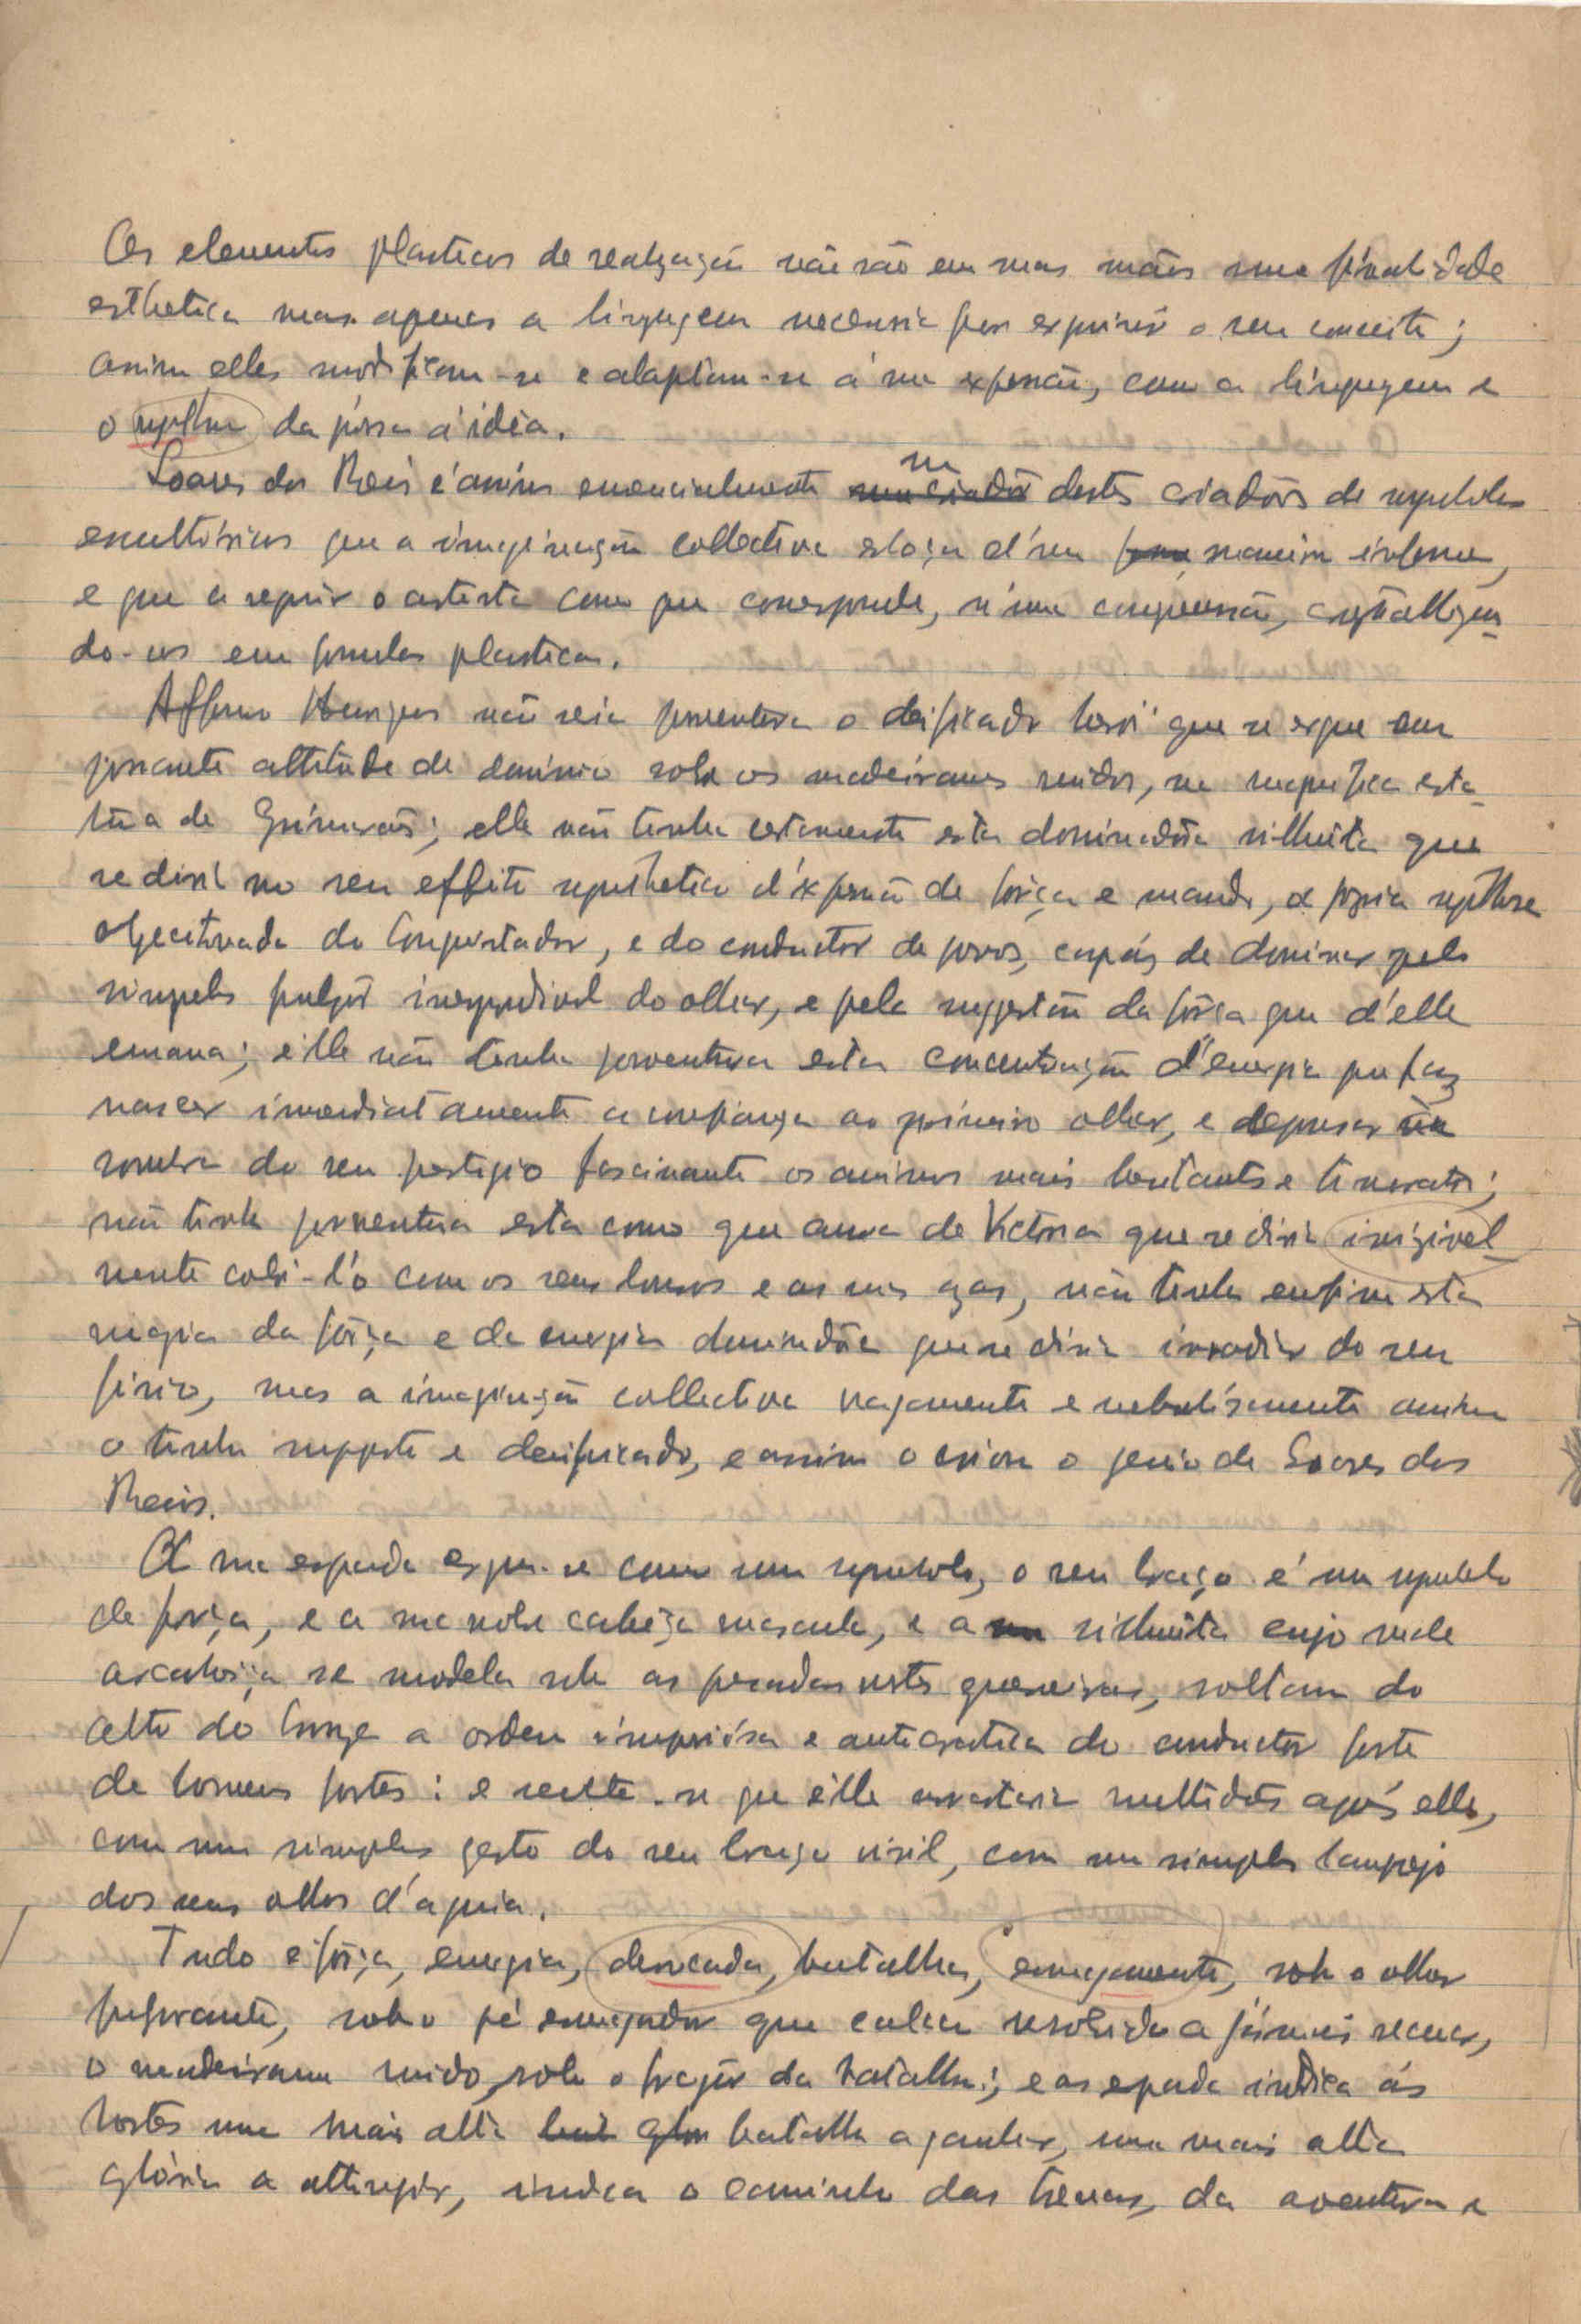 Os elementos plasticos de realização não são em suas mãos uma finalidade
esthetica mas apenas a linguagem necessaria para exprimir o seu conceito;
assim elles modificam-se e adaptam-se á sua expressão, como a linguagem e
o da prosa á idèa.
Soares dos Reis é assim essencialmente um destes criadôres de symbolos
escultóricos que a imaginação collectiva esboça d'uma maneira informe,
e que a seguir o artista como que corresponde, n'uma compreensão, crystallizan-
do-os em formulas plasticas.
Affonso Henriques não seria porventura o deificado heroi que se ergue em
possante attitude de dominio sobre os madeirames unidos, na magnifica esta-
tua de Guimarães; elle não tinha certamente esta dominadôra silhueta que
se diria no seu effeito synthetico d'expressão de fôrça e mando, a propria synthese
objectivada do Conquistador, e do conductor de povos, capáz de dominar pelo
simples fulgôr do olhar, e pela suggestão da fôrça que d'elle
emana; élle não tinha porventura esta concentração d'energia que faz
nascer immediatamente a confiança ao primeiro olhar, e na
sombra do seu prestigio fascinante os animos mais hesitantes e timoratos;
não tinha porventura esta como que aura de Victoria que se diria invizivel-
mente cobri-l'o com os seus louros e as suas azas, não tinha enfim esta
magia da fôrça e da energia dominadôra que se diria irradiar do seu
fisico, mas a imaginação collectiva vagamente e nebulósamente assim
o tinha supposto e deificado, e assim o criou o genio de Soares dos
Reis.
A sua espada ergue-se como um symbolo, o seu braço é um symbolo
de força, e a sua nobre cabeça mascula, e a silhueta cujo
se modela sob as pesadas vestes guerreiras, soltam do
alto do bronze a ordem imperiósa e autocratica do conductor forte
de homens fortes: e sente-se que élle arrastaria multidões após elle,
com um simples gesto do seu braço viril, com um simples lampejo
dos seus olhos d'aguia.
Tudo é fôrça, energia, derrocada, batalha, esmagamento, sob o olhar
perfurante, sob o pé esmagador que calca resolvido a jámais recuar,
o madeirame unido, sob o fragôr da batalha; e a espada indica ás
hostes uma mais alta batalha a ganhar, uma mais alta
glória a attingir, indica o caminho das trevas, da aventura e